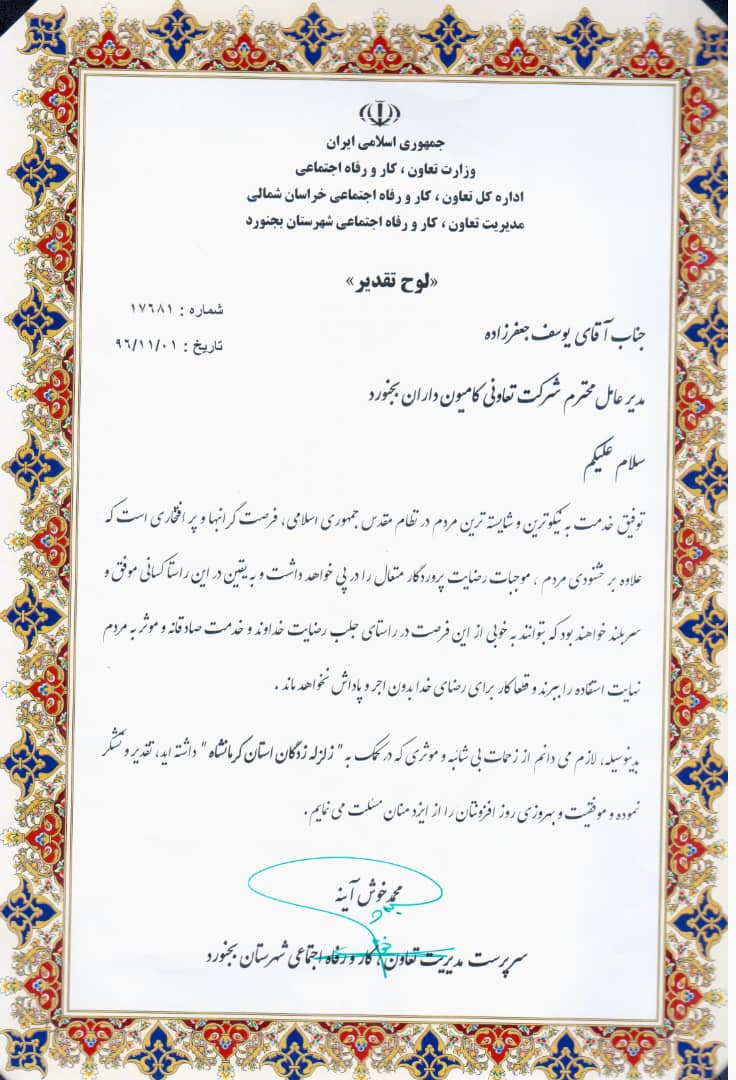 جمهوری اسلامی ایران
وزارت تعاون ، کار و رفاه اجتماعی
اداره کل تعاون ، کار و رفاه اجتماعی خراسان شمالی
مدیریت تعاون ، کار و رفاه اجتماعی شهرستان بجنورد
«لوح تقدیر»
شماره : ۱۷۶۸۱
تاریخ : ۹۶/۱۱/۰۱
جناب آقای یوسف جعفرزاده
مدیر عامل محترم شرکت تعاونی کامیون داران بجنورد
سلام علیکم
توفیق خدمت به نیکوترین و شایسته ترین مردم در نظام مقدس جمهوری اسلامی، فرصت گرانبها و پر افتخاری است که
علاوه بر خشنودی مردم ، موجبات رضایت پروردگار متعال را در پی خواهد داشت و به یقین در این راستا کسانی موفق و
سربلند خواهند بود که بتوانند به خوبی از این فرصت در راستای جلب رضایت خداوند و خدمت صادقانه و موثر به مردم
نهایت استفاده را ببرند و قطعا کار برای رضای خدا بدون اجر و پاداش نخواهد ماند .
بدینوسیله، لازم می دانم از زحمات بی شائبه و موثری که در کمک به " زلزله زدگان استان کرمانشاه " داشته اید، تقدیر و تشکر
نموده و موفقیت و بهروزی روز افزونتان را از ایزد منان مسئلت می نمایم .
محمد خوش آینه
سرپرست مدیریت تعاون ، کار و رفاه اجتماعی شهرستان بجنورد